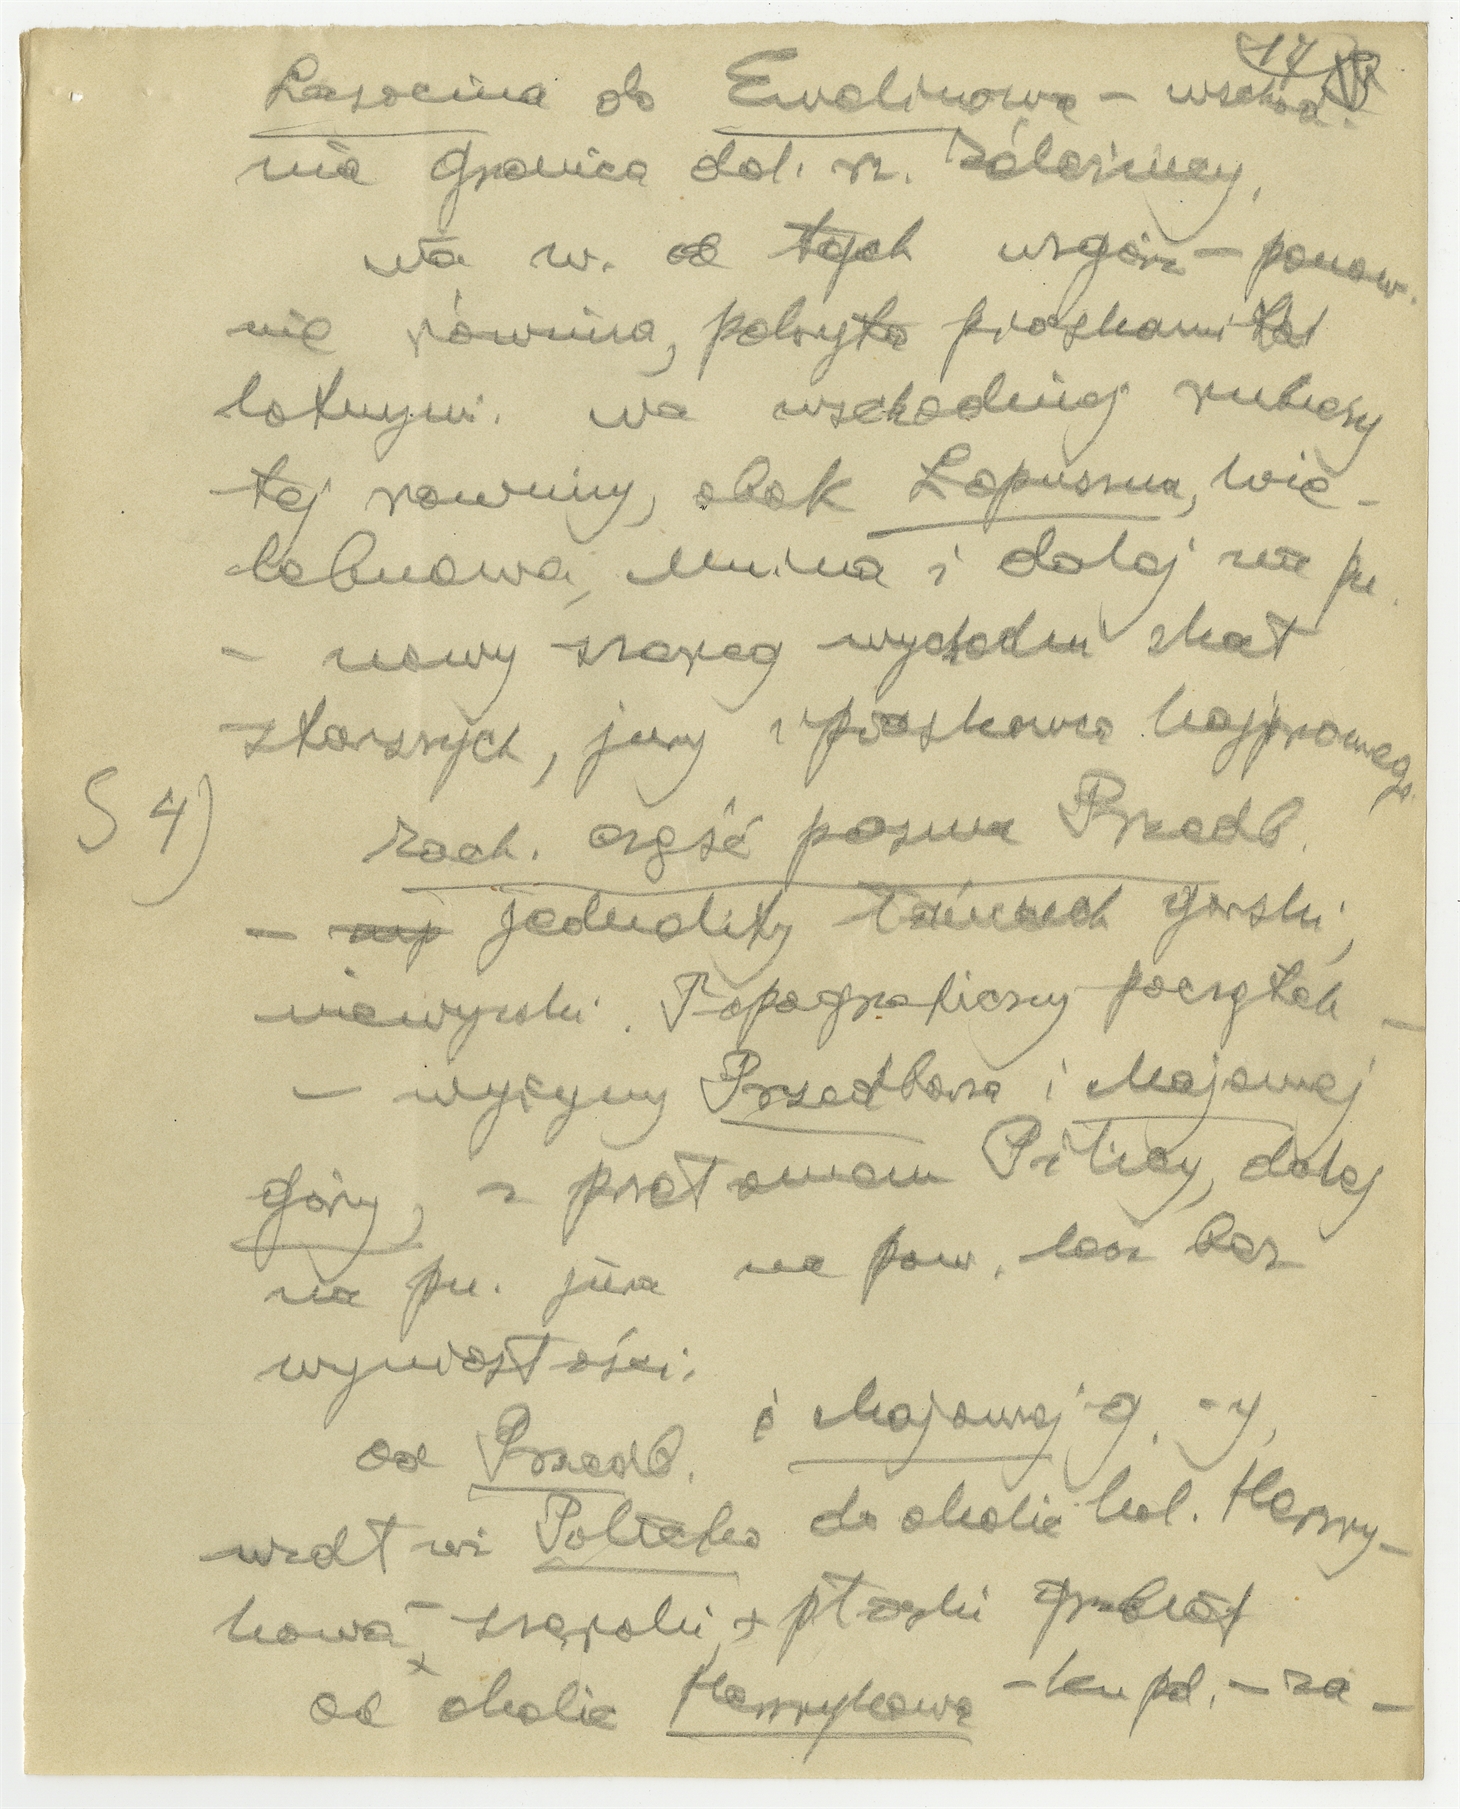 17
Łasocina do Ewelinowa – wschod.
nia granica dol. rz.
na w. od tych wzgórz – ponow.
nie równina, pokryta piaskami
lotnymi. na wschodniej rubieży
tej równiny, obok Łopuszna, Wie-
lebnowa, Mnina i dalej na pn.
– nowy szereg wychodni skał
starszych, jury i piaskowca kajprowego
§ 4)
zach. część pasma Przedb.
– jednolity łańcuch górski,
niewysoki. Topograficzny początek –
– wyżyny Przedborza i Majowej
góry, z przełomem Pilicy, dalej
na pn. jura na pow. lecz bez
wyniosłości.
od Przedb. i Majowej g. -y,
wzdł wsi do okolic kol. Henry-
kowa – szeroki, + płaski grzbiet
od okolic Henrykowa – ku pd. – za –